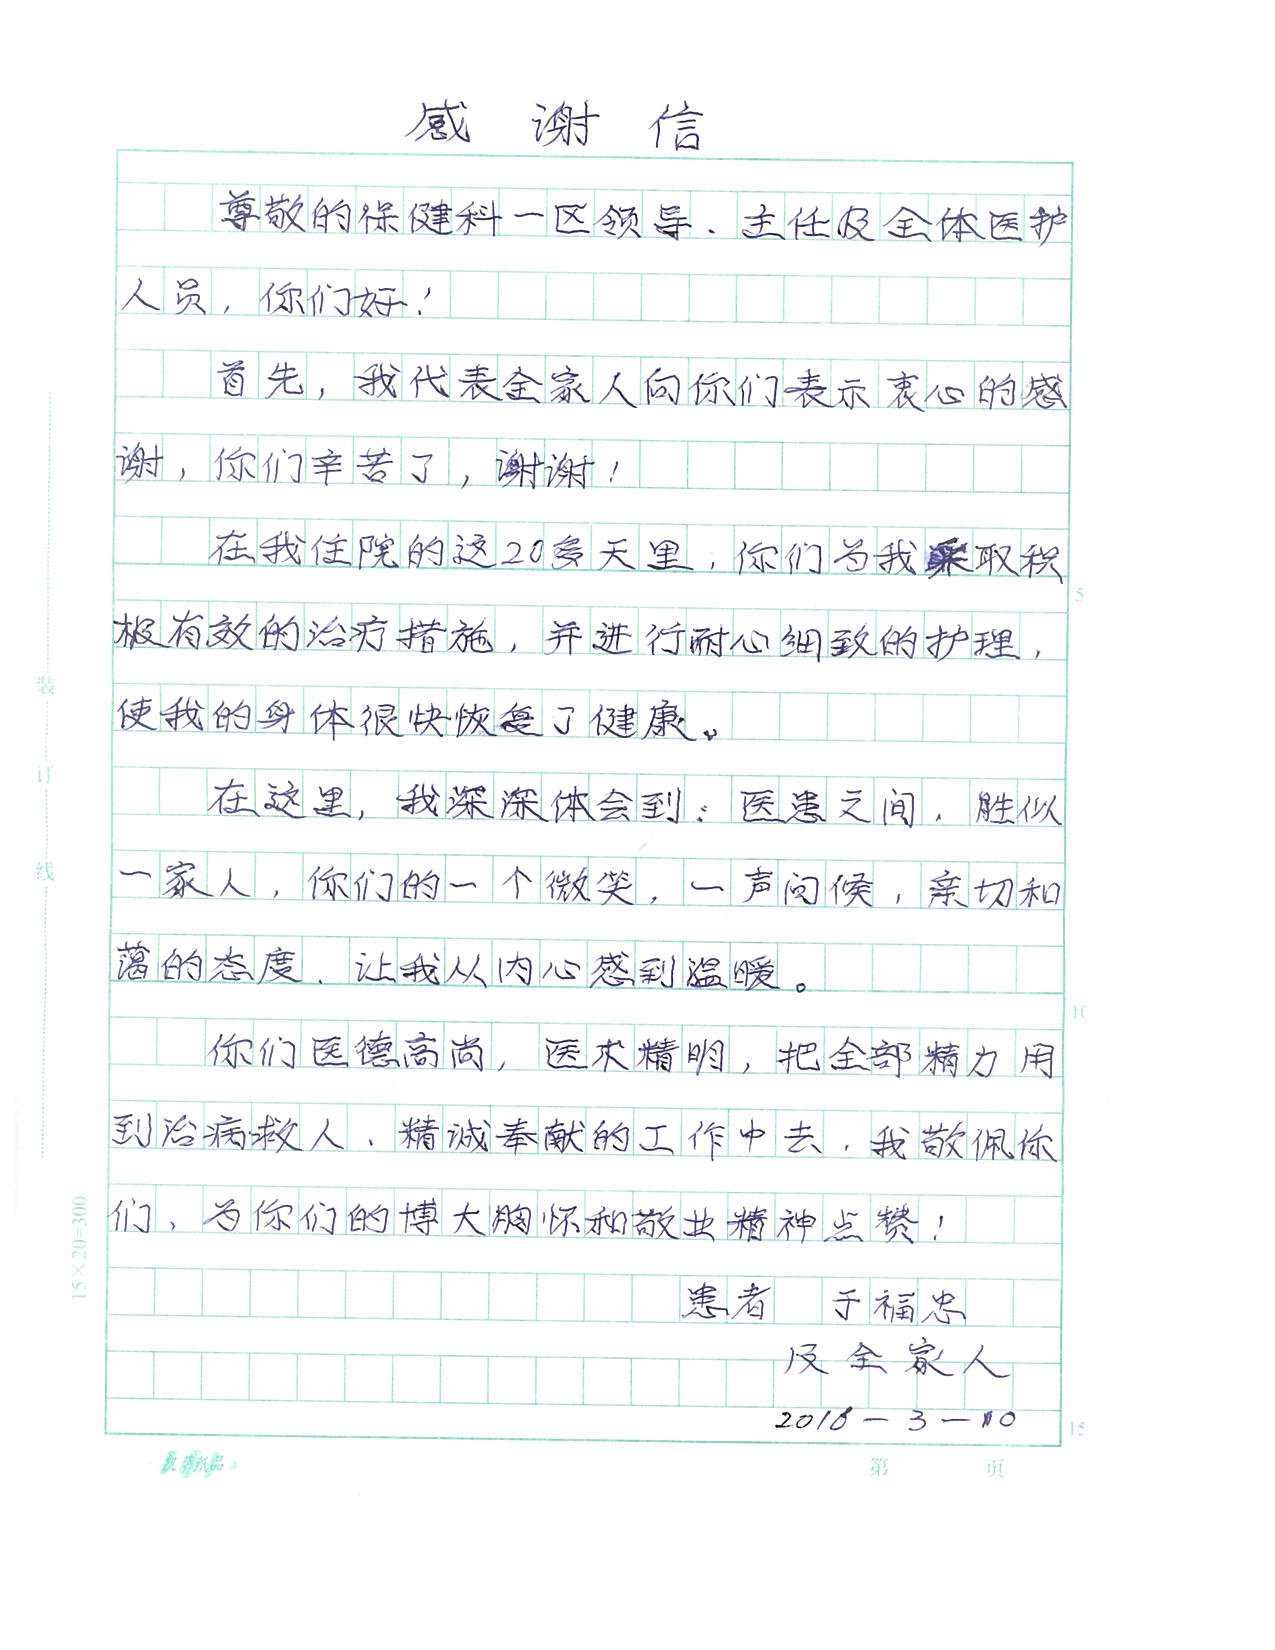 感谢信
尊敬的保健科一区领导、主任及全体医护
人员，你们好！
首先，我代表全家人向你们表示衷心的感
谢，你们辛苦了，谢谢！
在我住院的这20多天里，你们为我采取积
极有效的治疗措施，并进行耐心细致的护理，
使我的身体很快恢复了健康。
在这里，我深深体会到：医患之间，胜似
一家人，你们的一个微笑，一声问候，亲切和
蔼的态度、让我从内心感到温暖。
你们医德高尚，医术精明，把全部精力用
到治病救人、精诚奉献的工作中去，我敬佩你
们、为你们的博大胸怀和敬业精神点赞！
患者 于福忠
及全家人
2018-3-10
装
订
线
15×20=300
5
10
15
第 页